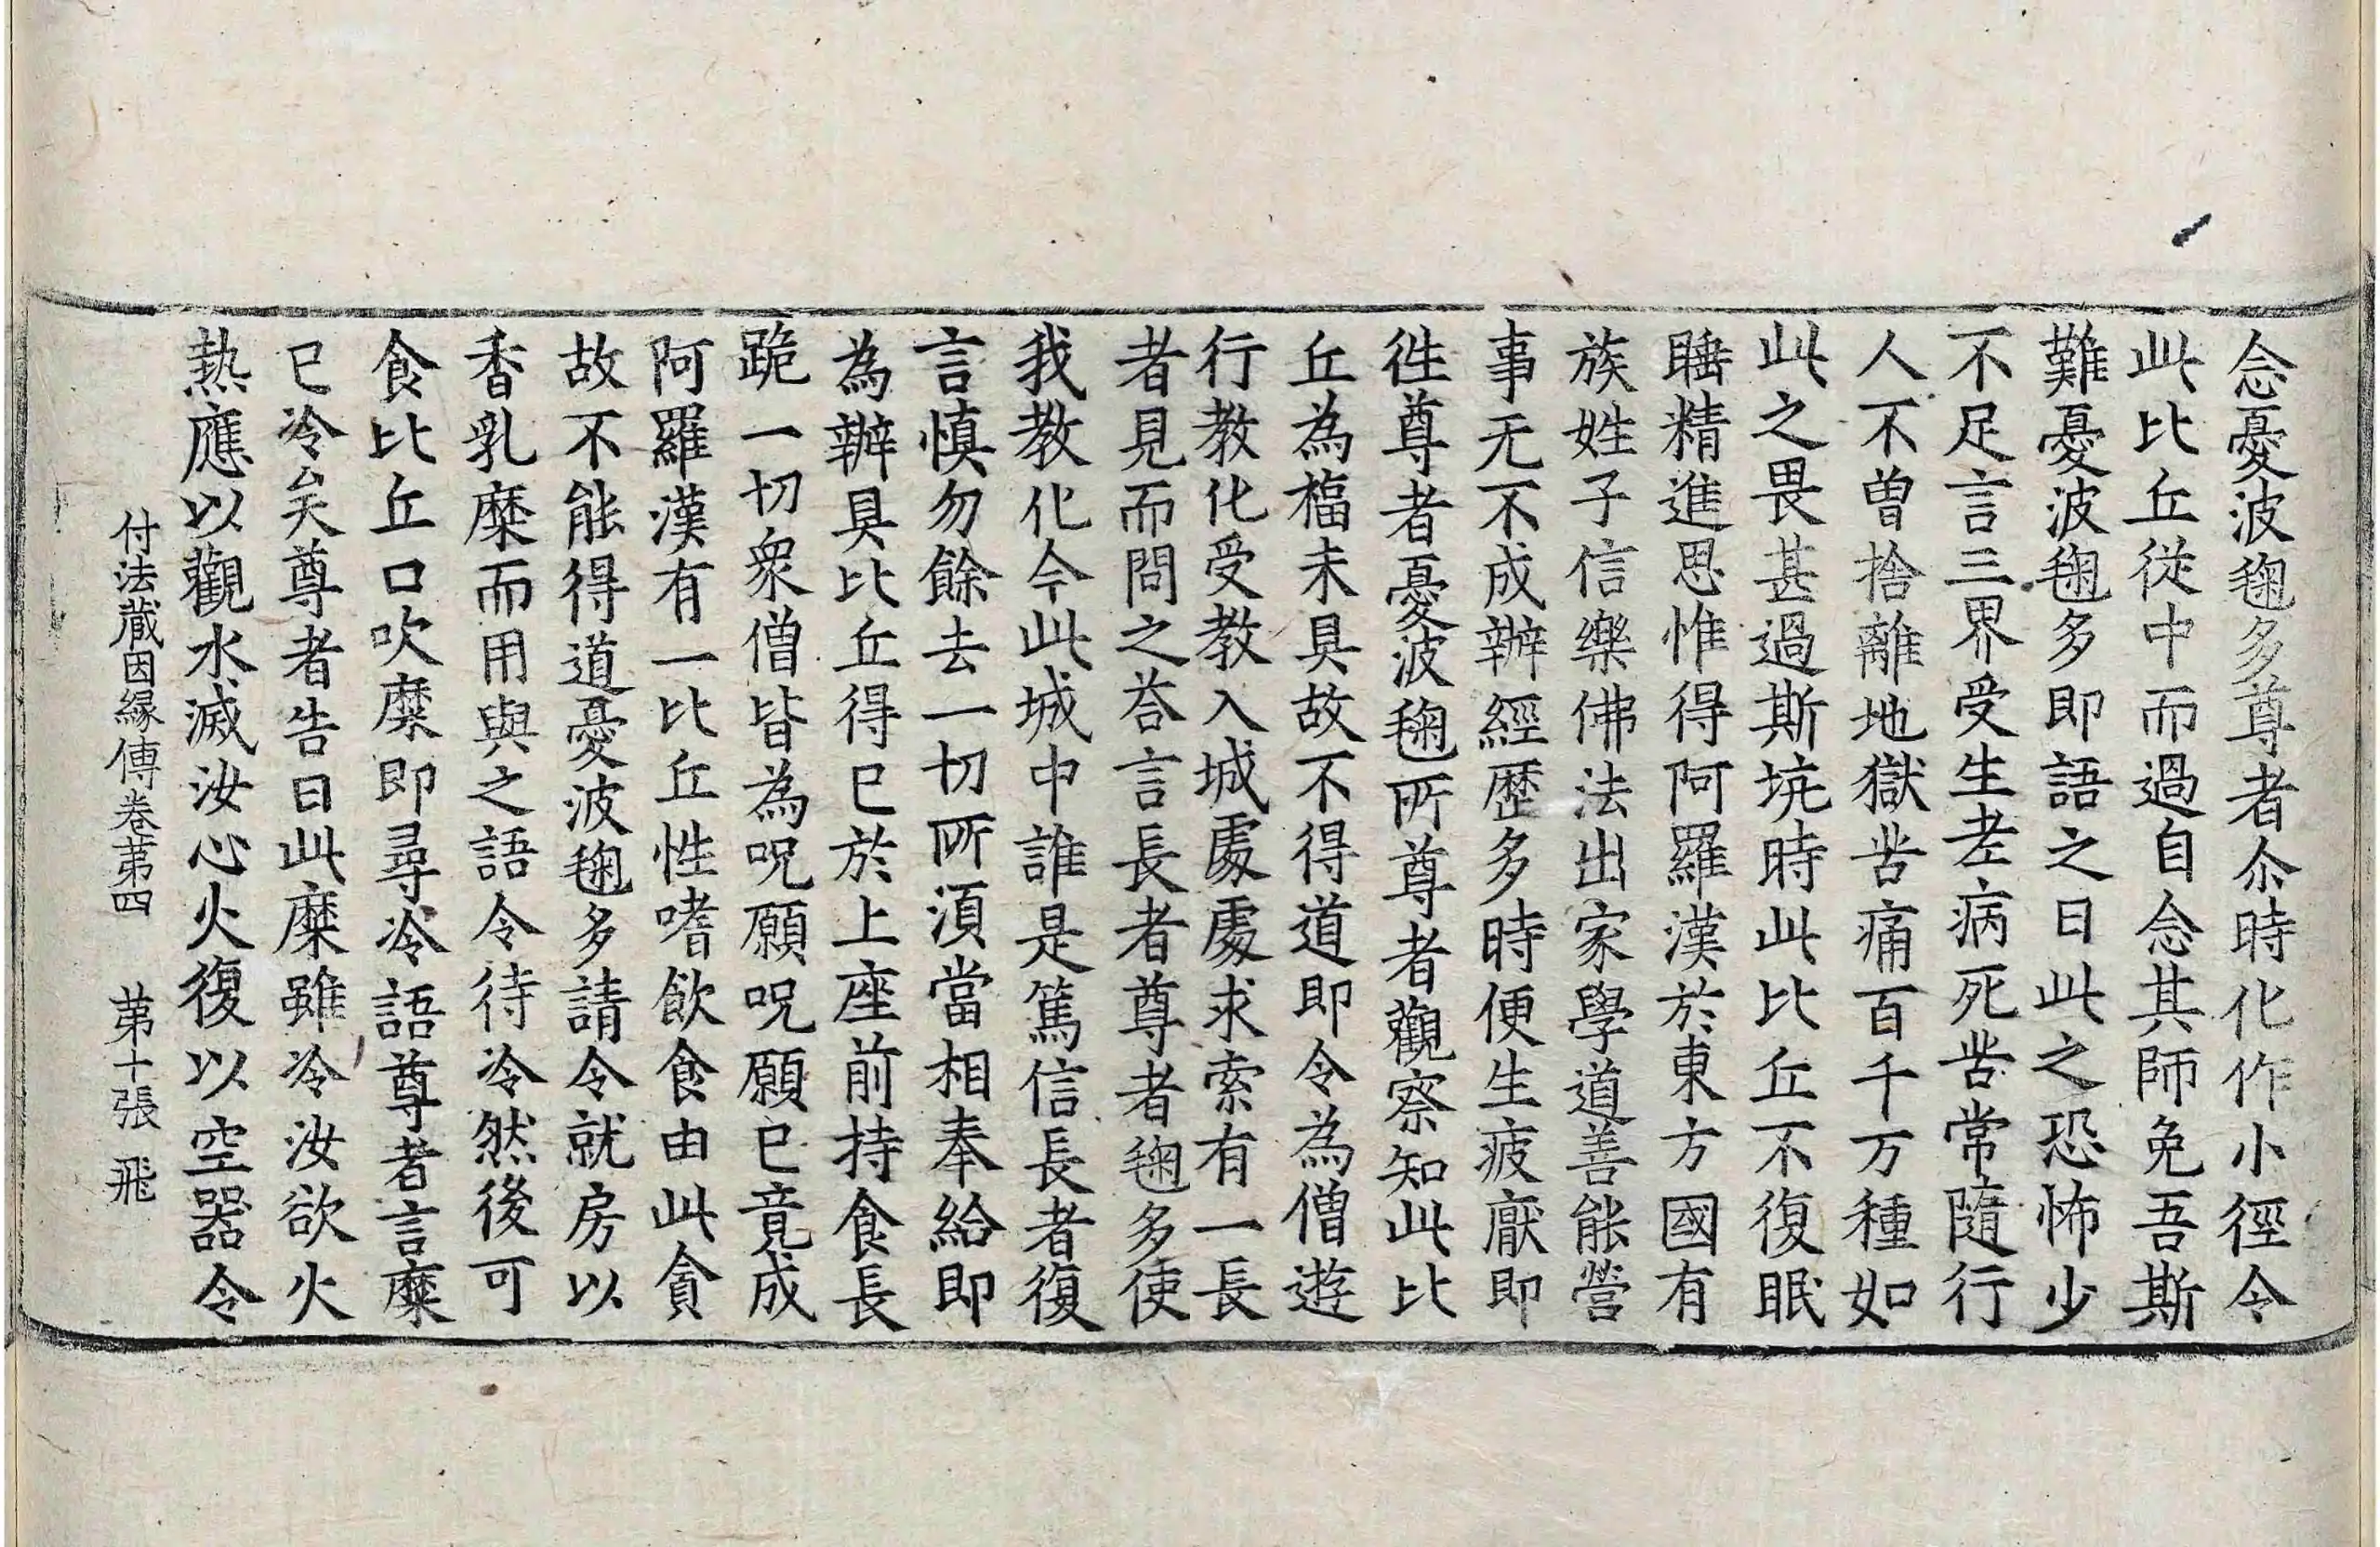 念憂波毱多尊者尒時化作小徑令
此比丘從中而過自念其師免吾斯
難憂波毱多即語之曰此之恐怖少
不足言三界受生老病死苦常隨行
人不曾捨離地獄苦痛百千万種如
此之畏甚過斯坑時此比丘不復眠
睡精進思惟得阿羅漢於東方國有
族姓子信樂佛法出家學道善能營
事无不成辦經歷多時便生疲厭即
徃尊者憂波毱所尊者觀察知此比
丘為福未具故不得道即令為僧遊
行教化受教入城處處求索有一長
者見而問之荅言長者尊者毱多使
我教化今此城中誰是篤信長者復
言慎勿餘去一切所須當相奉給即
為辦具比丘得已於上座前持食長
跪一切衆僧皆為呪願呪願已竟成
阿羅漢有一比丘性嗜飲食由此貪
故不能得道憂波毱多請令就房以
香乳糜而用與之語令待冷然後可
食比丘口吹糜即尋冷語尊者言糜
已冷矣尊者告曰此糜雖冷汝欲火
熱應以觀水滅汝心火復以空器令
付法藏因緣傳卷苐四 苐十張 飛